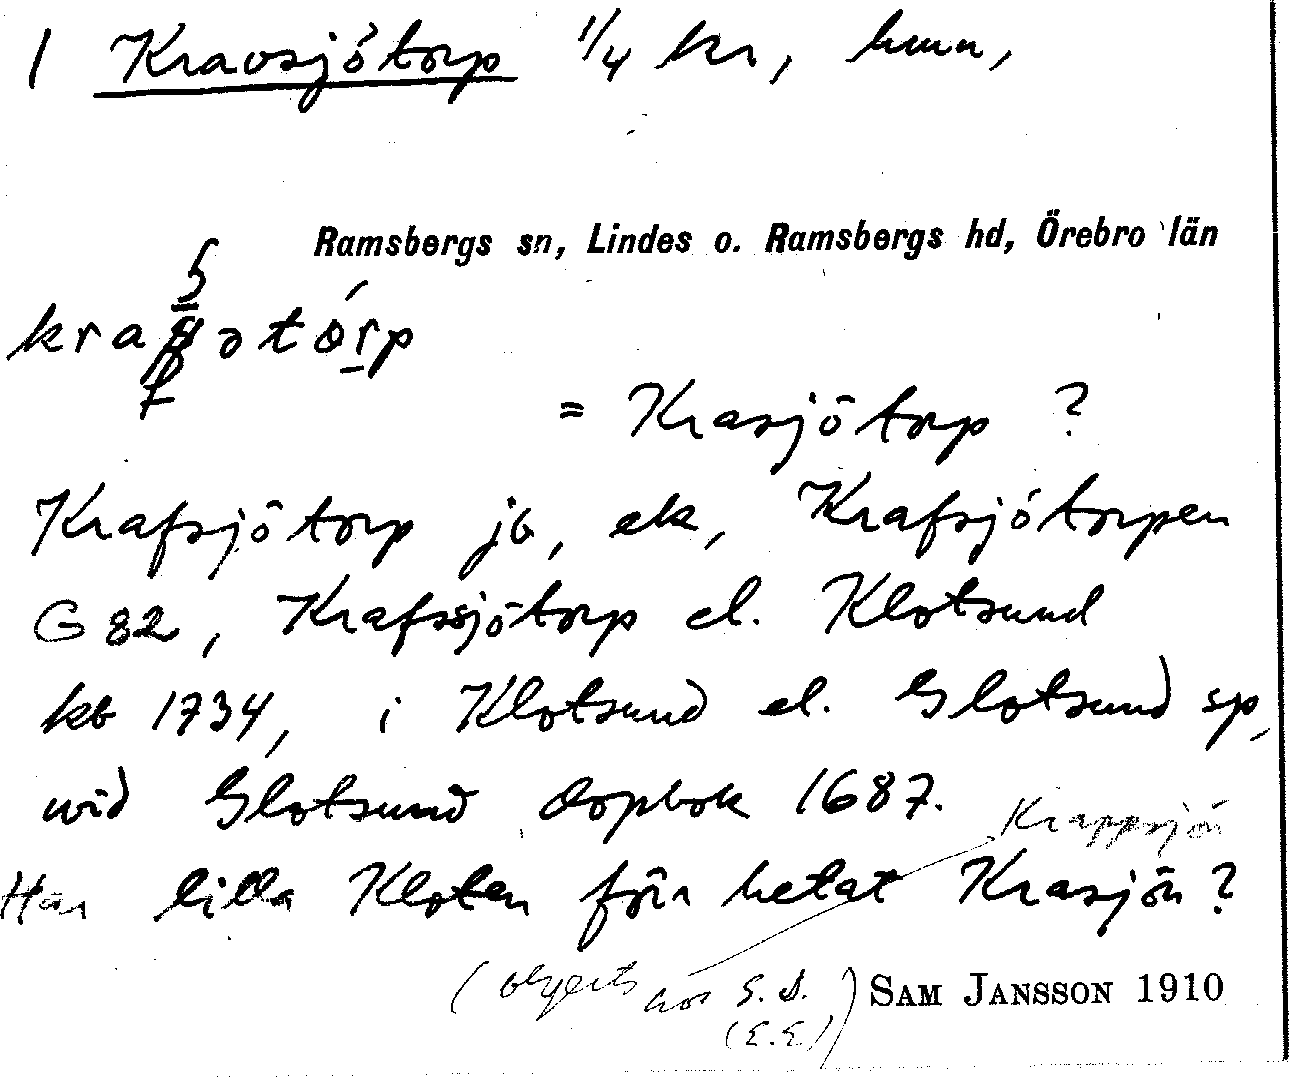 1 Kravsjötorp 1/4 kr, hmn,
Ramsbergs sn, Lindes o. Ramsbergs hd, Örebro län
= Krasjötorp ?
Krafsjötorp jb, ek, Krafsjötorpen
G 82, Krafssjötorp el. Klotsund
kb 1734, i Klotsund el. Glotsund sp,
wid Glotsund dopbok 1687.
Krappsjön
Har lilla Kloten förr hetat Krasjön?
hos S. S. ) SAM JANSSON 1910
(E.E.)